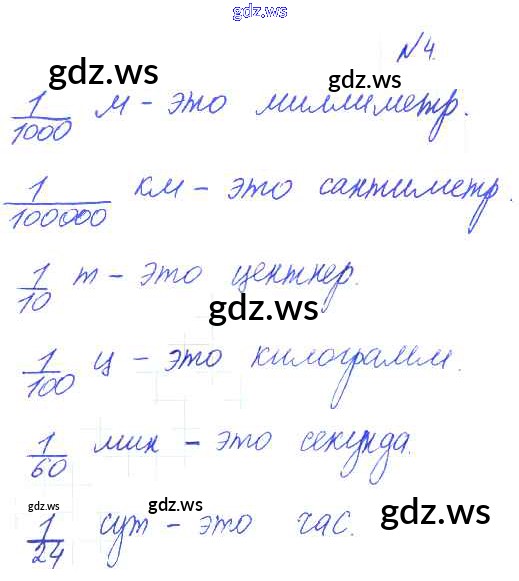 gdz.ws
№4.
gdz.ws gdz.ws
1/1000 м - это миллиметр.
1/100000 км - это сантиметр.
1/10 т - это центнер.
gdz.ws
1/100 ц - это килограмм.
1/60 мин - это секунда.
gdz.ws gdz.ws gdz.ws
1/24 сут - это час.